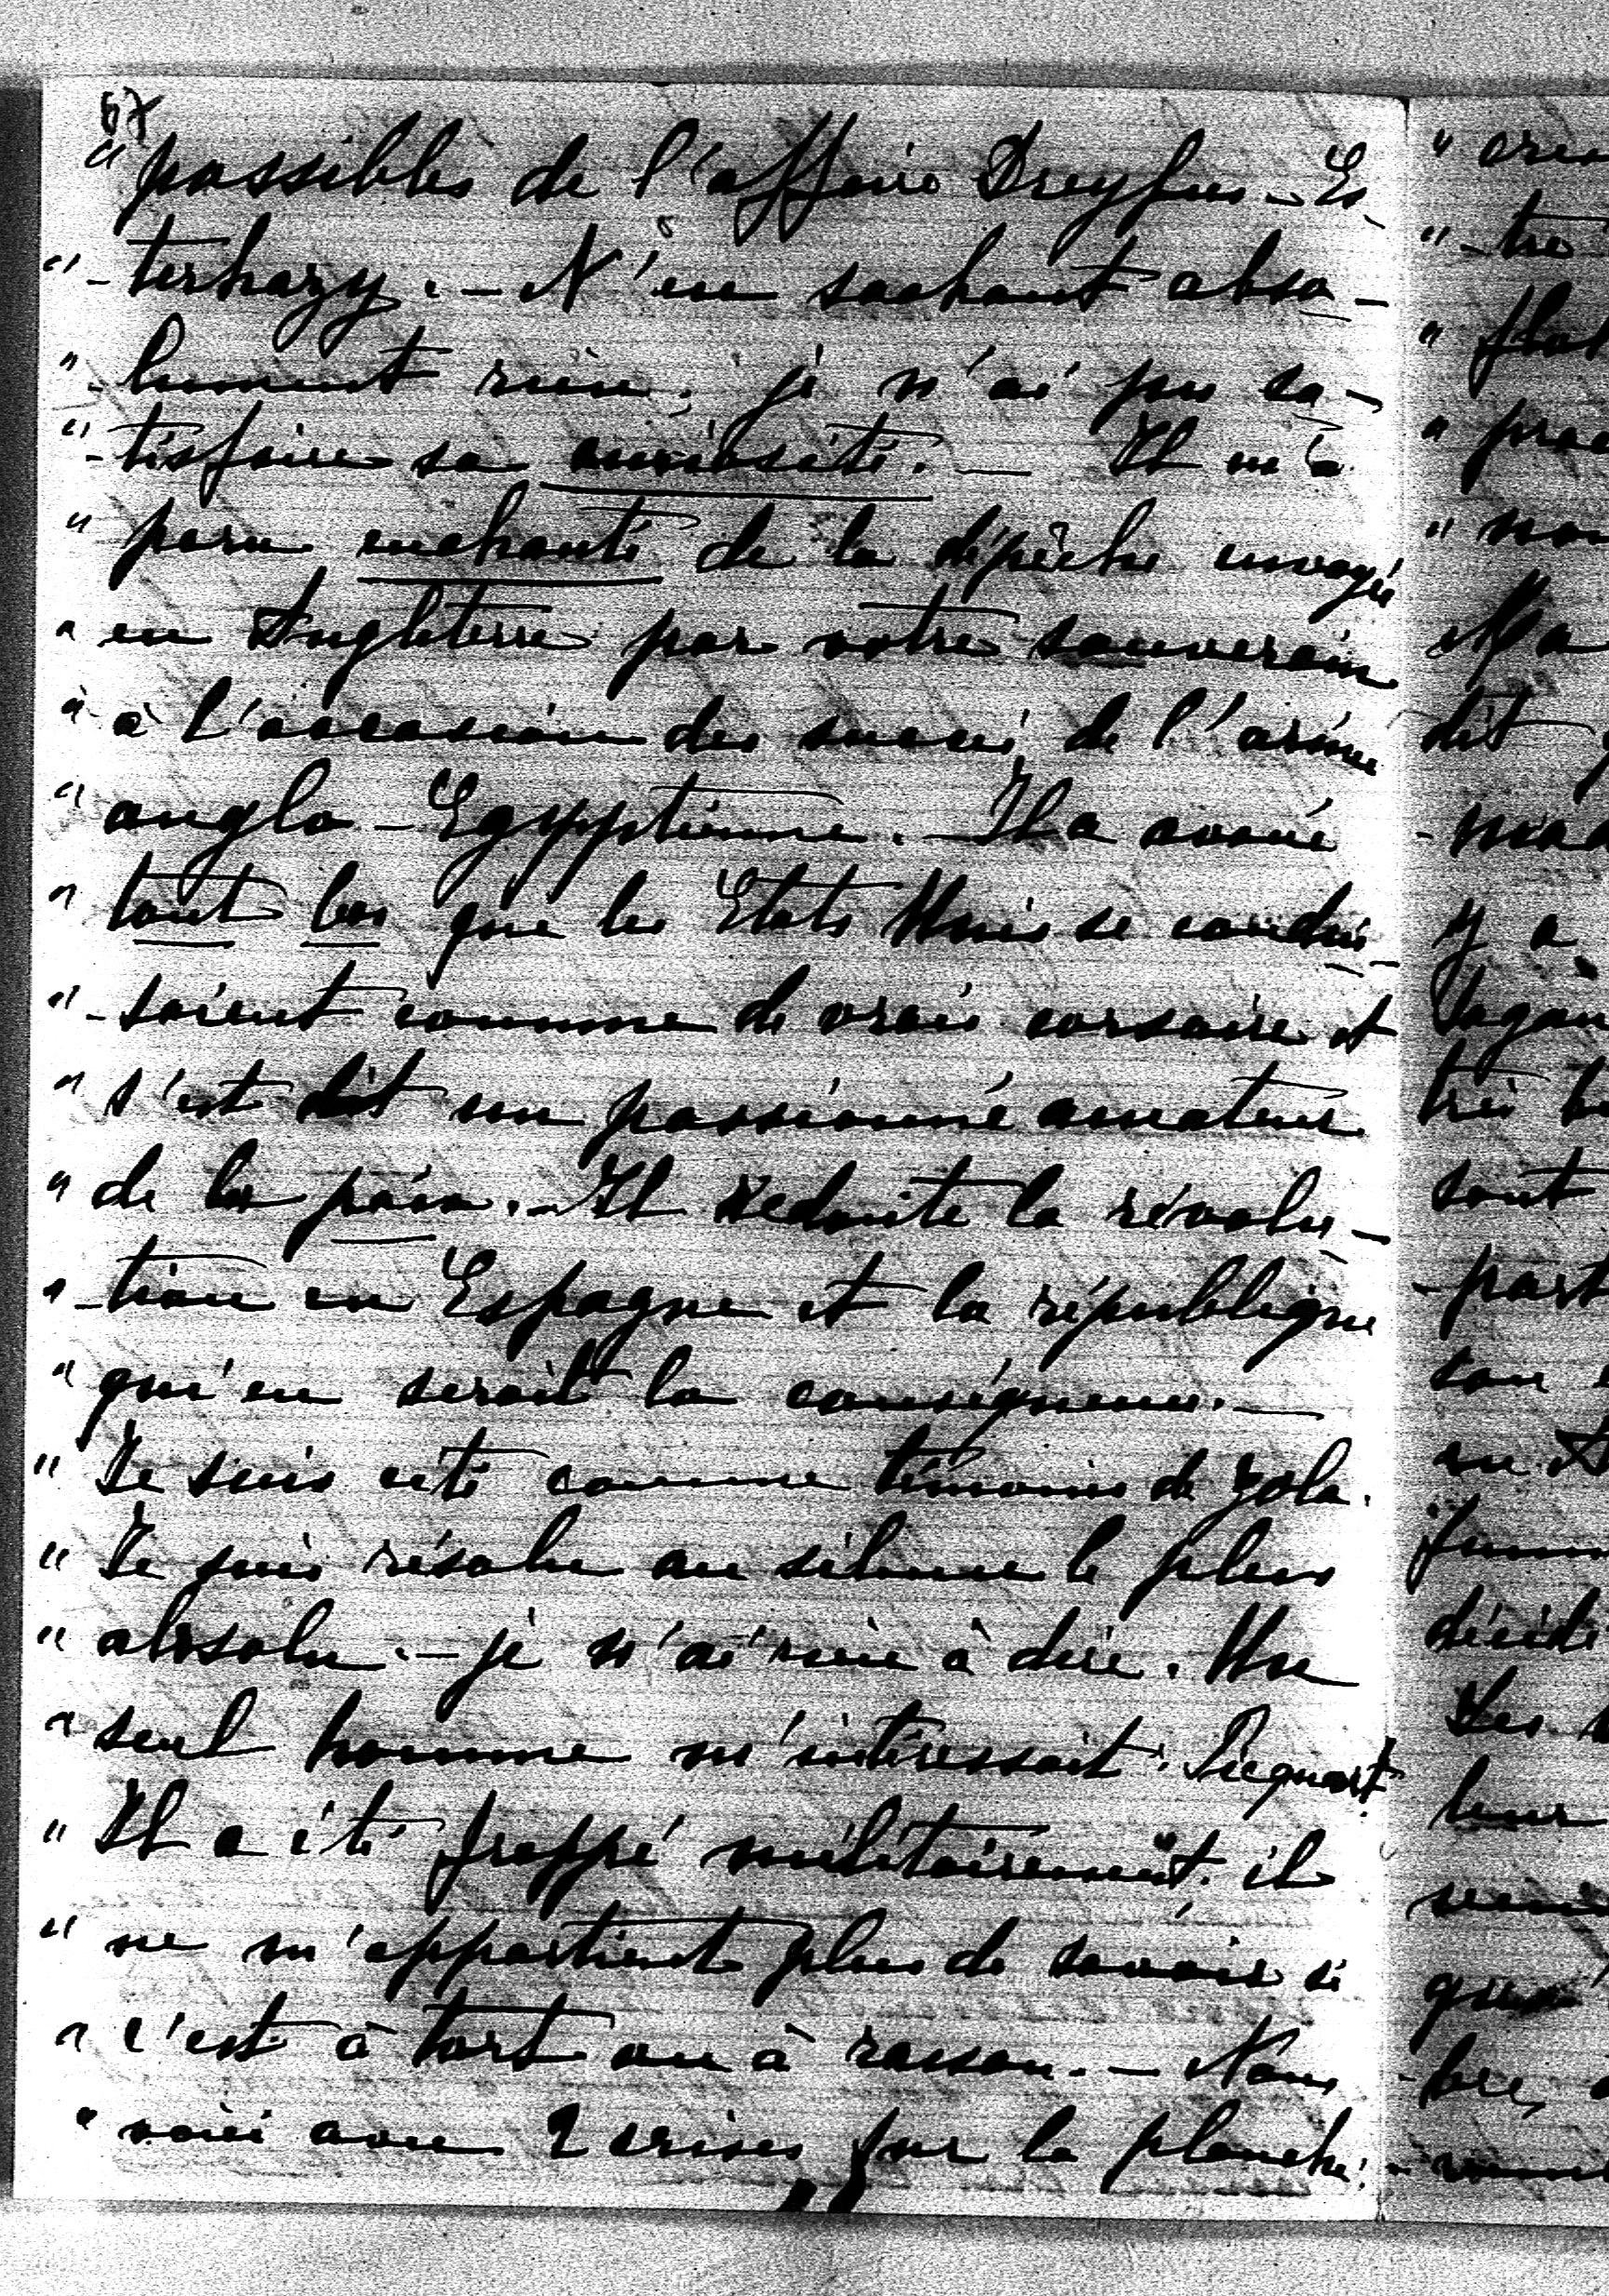 57
" possibles de l'affaire Dreyfus - Es
" - terhazy. - N'en sachant abso -
" - lument rien, je n'ai pu sa -
" - tisfaire sa curiosité. - Il m'a
" paru enchanté de la dépêche envoyée
" en Angleterre par votre souverain
" à l'occasion des succès de l'armée
" anglo - Egyptienne. - Il a avoué
" tout bas que les Etats Unis se condui -
" - saient comme de vrais corsaires et
" s'est dit un passionné amateur
" de la paix. - Il redoute la révolu -
" - tion en Espagne et la république
" qui en serait la conséquence. -
" Je suis cité comme témoin de Zola.
" Je suis résolu au silence le plus
" absolu. - je n'ai rien à dire. Un
" seul homme m'intéressait : Picquart.
" Il a été frappé militairement. il
" ne m'appartient plus de savoir si
" c'est à tort ou à raison. - Nous
" voici avec 2 crises sur la planche :
" -tre
Ma
dit
y a
très
sont
- part
son
décidé
leur